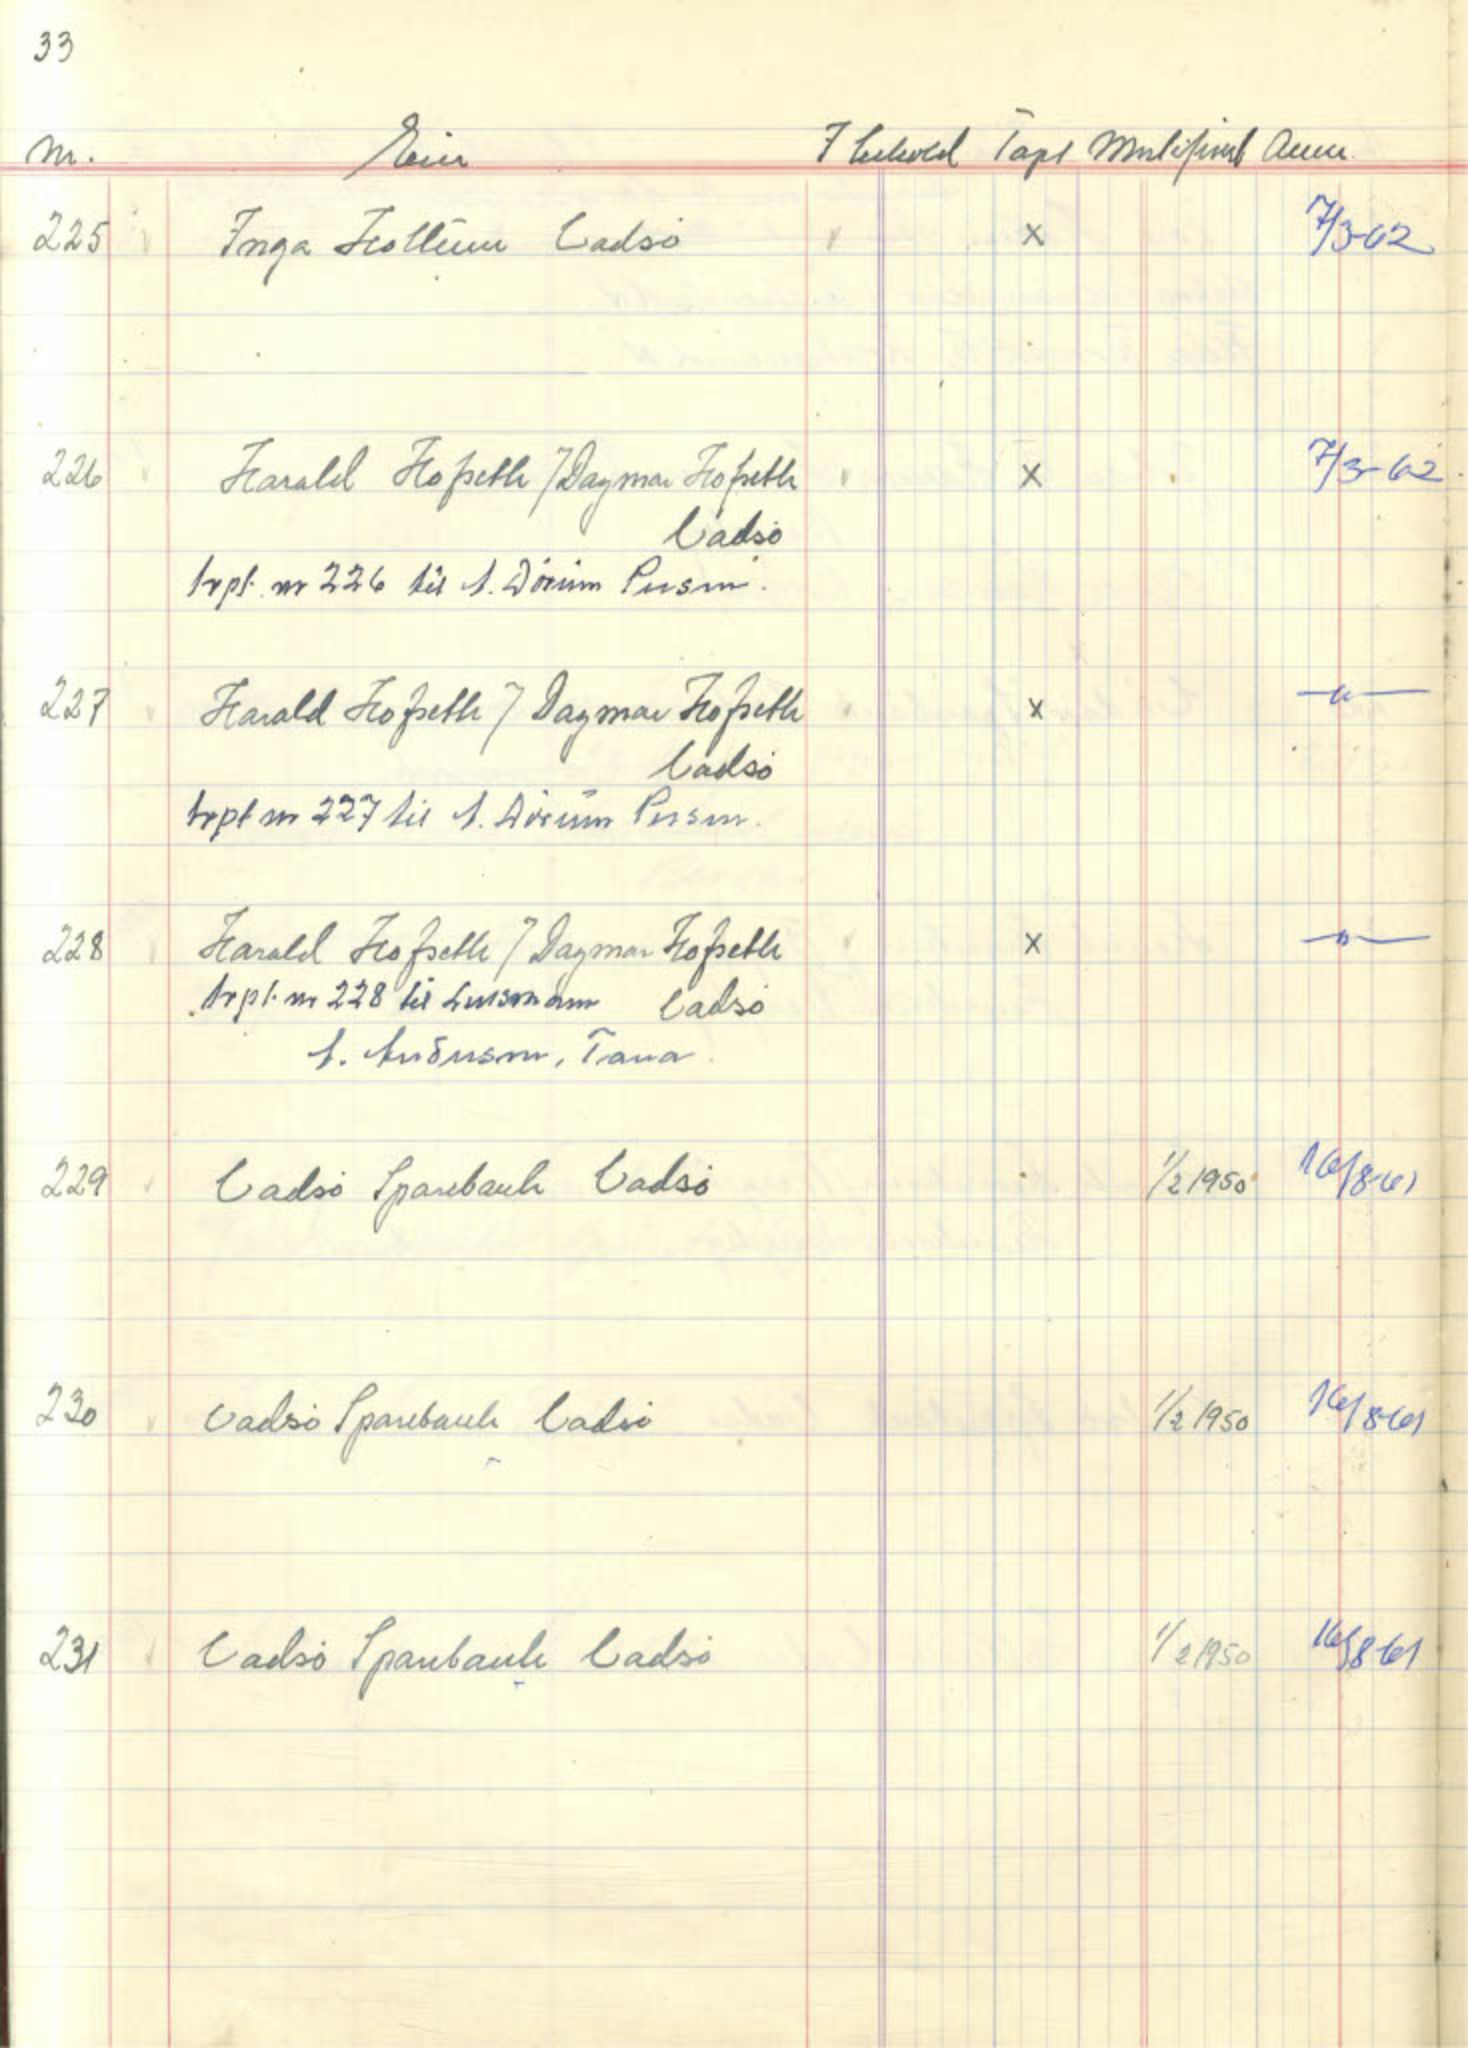 33
Nr. Eier I behold Tapt Mortifisert Ann.
225 Inga Hottum Vadsö x 7/3-62
226 Harald Hofseth / Dagmar Hofseth x 7/3-62
Vadsö
trpt. nr 226 til
227 Harald Hofseth / Dagmar Hofseth x —"—
Vadsö
trpt nr 227 til
228 Harald Hofseth / Dagmar Hofseth x —"—
trpt. nr 228 til Lensmann Vadsö
A. Andersen, Tana
229 Vadsö Sparebank Vadsö 1/2 1950 16/8-61
230 Vadsö Sparebank Vadsö 1/2 1950 16/8-61
231 Vadsö Sparebank Vadsö 1/2 1950 16/8-61